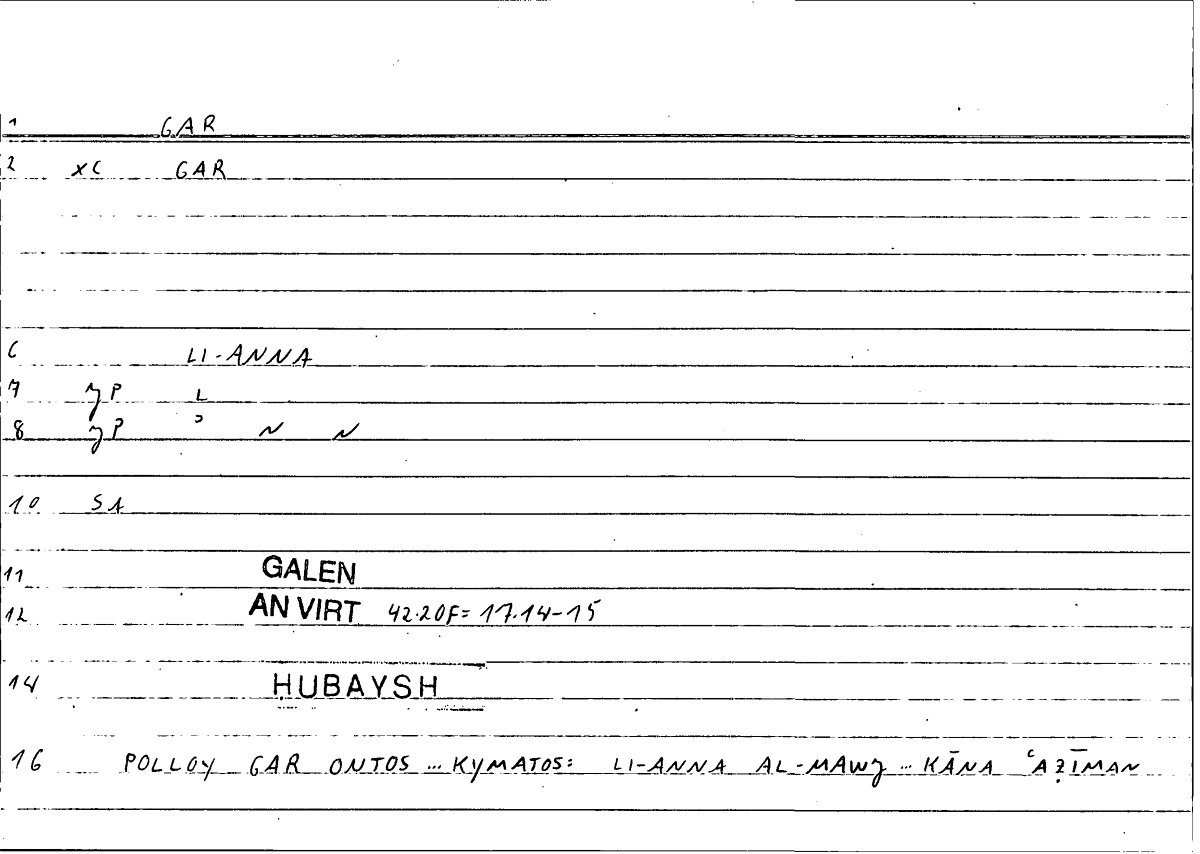 1 GAR
2 xc GAR
6 LI-ANNA
7 jP L
8 jP ʾ N N
10 SA
11 GALEN
12 AN VIRT 42.20F= 17.14-15
14 ḤUBAYSH
16 POLLOY GAR ONTOS ... KYMATOS: LI-ANNA AL-MAWJ ... KĀNA ʿAẒĪMAN